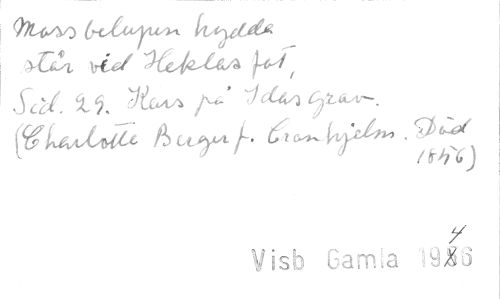 Mossbelupen hydda
står vid Heklas fot,
Sid. 29. Kors på Idas grav.
(Charlotte Berger f. Cronhjelm. Död
1856)
Visb Gamla 1946